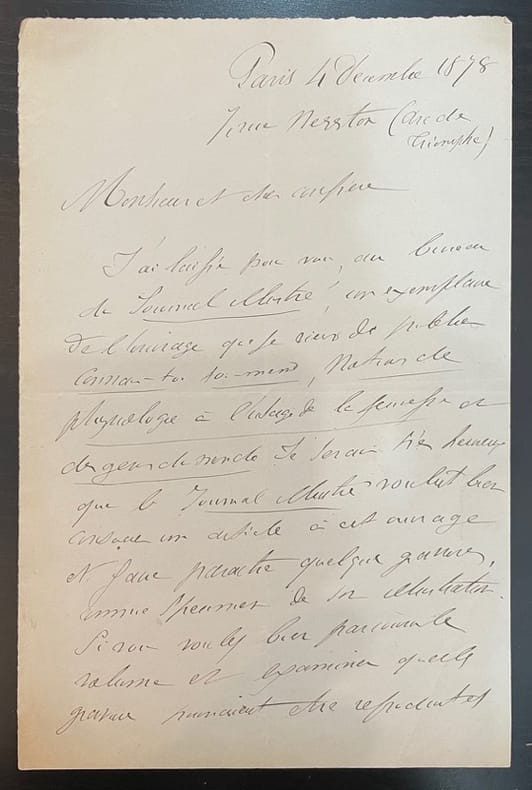 Paris 4 Décembre 1878
7 rue Nesston (Arc de
Triomphe)
Monsieur et cher confrère
J'ai laissé pour vous, au bureau
du Journal illustré, un exemplaire
de l'ouvrage que je viens de publier
Connais-toi toi-même, Notions de
physiologie à l'usage de la jeunesse et
des gens du monde. Je serais très heureux
que le Journal illustré voulut bien
consacrer un article à cet ouvrage
et faire paraître quelques gravures,
comme spécimen de son illustration.
Si vous voulez bien parcourir le
volume et examiner quelles
gravures pourraient être reproduites